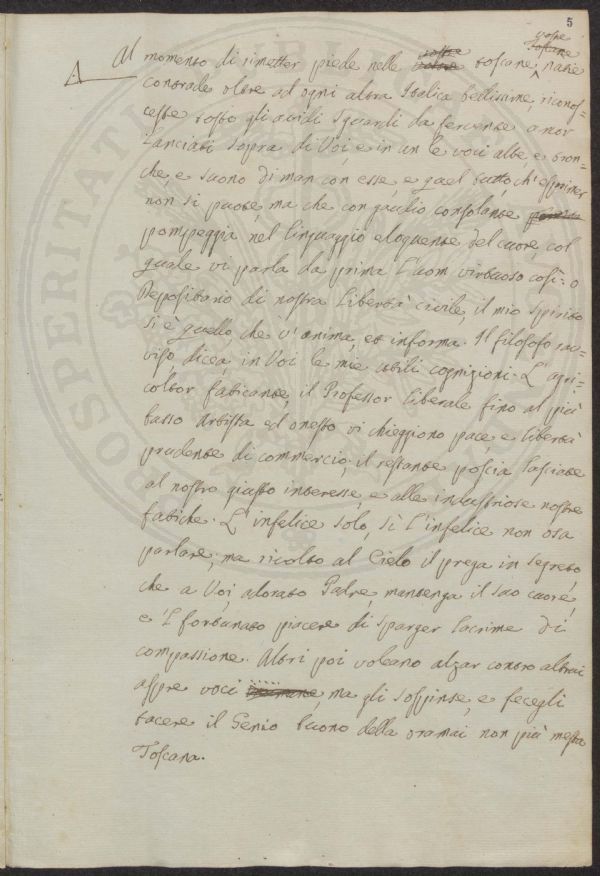 5
vostre
Toscane
Al momento di rimetter piede nelle vostre toscane, natie
contrade oltre ad ogni altra Italica bellissime, riconos=
ceste tosto gli avidi sguardi da fervente amor
lanciati sopra di Voi, e in un le voci alte, e tron=
che, e suono di man con esse, e quel tutto, ch'esprimer
non si puote, ma che con gaudio consolante
pompeggia nel linguaggio eloquente del cuore, col
quale vi parla da prima l'uom virtuoso così: o
Depositario di nostra libertà civile, il mio spirito
si è quello, che v'anima, et informa. Il filosofo rav=
viso, dicea, in Voi le mie utili cognizioni. L'agri=
coltor faticante, il Professor liberale fino al più
basso Artista ed onesto vi chieggiono pace, e libertà
prudente di commercio; il restante poscia lasciate
al nostro giusto interesse, e alle industriose nostre
fatiche. L'infelice solo, sì l'infelice non osa
parlare; ma rivolto al Cielo il prega in segreto,
che a Voi, adorato Padre, mantenga il suo cuore,
e 'l fortunato piacere di sparger lacrime di
compassione. Altri poi voleano alzar contro altrui
aspre voci, ma gli sospinse, e fecegli
tacere il Genio buono della oramai non più mesta
Toscana.
PROSPERITATI